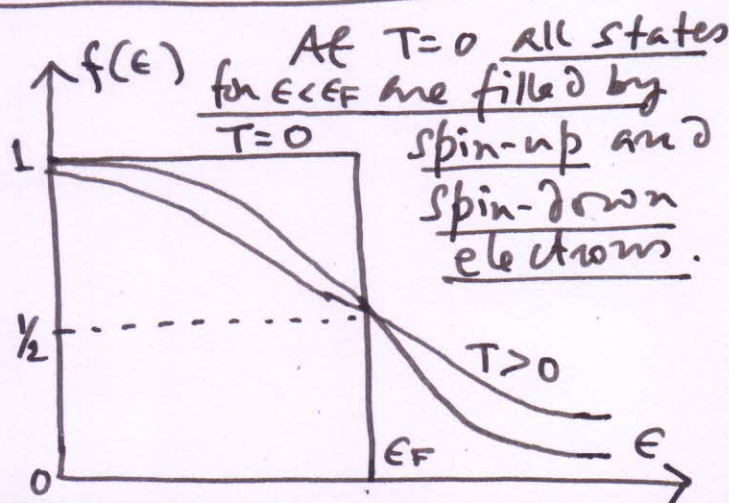 At T=0 all states
f(ϵ) for ϵ<ϵF are filled by
T=0 spin-up and
1 spin-down
electrons.
1/2
T>0
ϵF ϵ
0